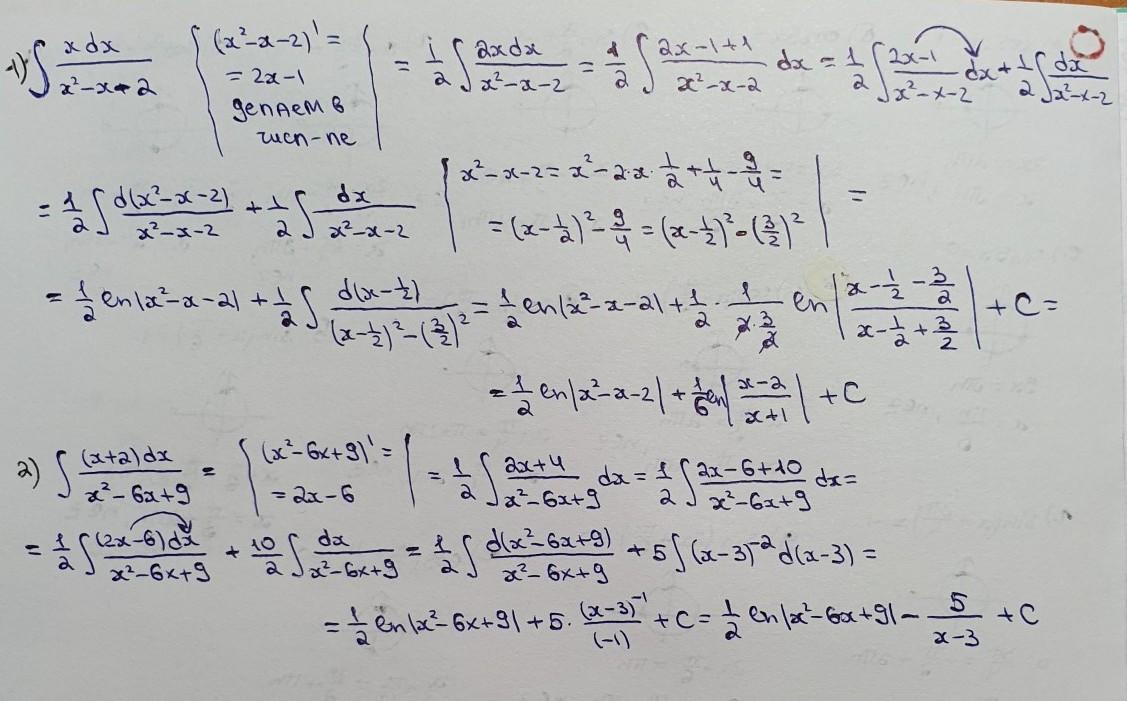 1) ∫ x dx / (x²-x-2) { (x²-x-2)' = = 2x-1 делаем в числ-ле | = 1/2 ∫ 2xdx / (x²-x-2) = 1/2 ∫ (2x-1+1) / (x²-x-2) dx = 1/2 ∫ (2x-1) / (x²-x-2) dx + 1/2 ∫ dx / (x²-x-2)
= 1/2 ∫ d(x²-x-2) / (x²-x-2) + 1/2 ∫ dx / (x²-x-2) | x²-x-2 = x² - 2·x· 1/2 + 1/4 - 9/4 = = (x - 1/2)² - 9/4 = (x - 1/2)² - (3/2)² | =
= 1/2 ln|x²-x-2| + 1/2 ∫ d(x - 1/2) / ((x - 1/2)² - (3/2)²) = 1/2 ln|x²-x-2| + 1/2 · 1/(2· 3/2) ln| (x - 1/2 - 3/2) / (x - 1/2 + 3/2) | + C =
= 1/2 ln|x²-x-2| + 1/6 ln| (x-2) / (x+1) | + C
2) ∫ (x+2)dx / (x²-6x+9) = { (x²-6x+9)' = = 2x-6 | = 1/2 ∫ (2x+4) / (x²-6x+9) dx = 1/2 ∫ (2x-6+10) / (x²-6x+9) dx =
= 1/2 ∫ (2x-6)dx / (x²-6x+9) + 10/2 ∫ dx / (x²-6x+9) = 1/2 ∫ d(x²-6x+9) / (x²-6x+9) + 5 ∫ (x-3)⁻² d(x-3) =
= 1/2 ln|x²-6x+9| + 5· (x-3)⁻¹ / (-1) + C = 1/2 ln|x²-6x+9| - 5 / (x-3) + C